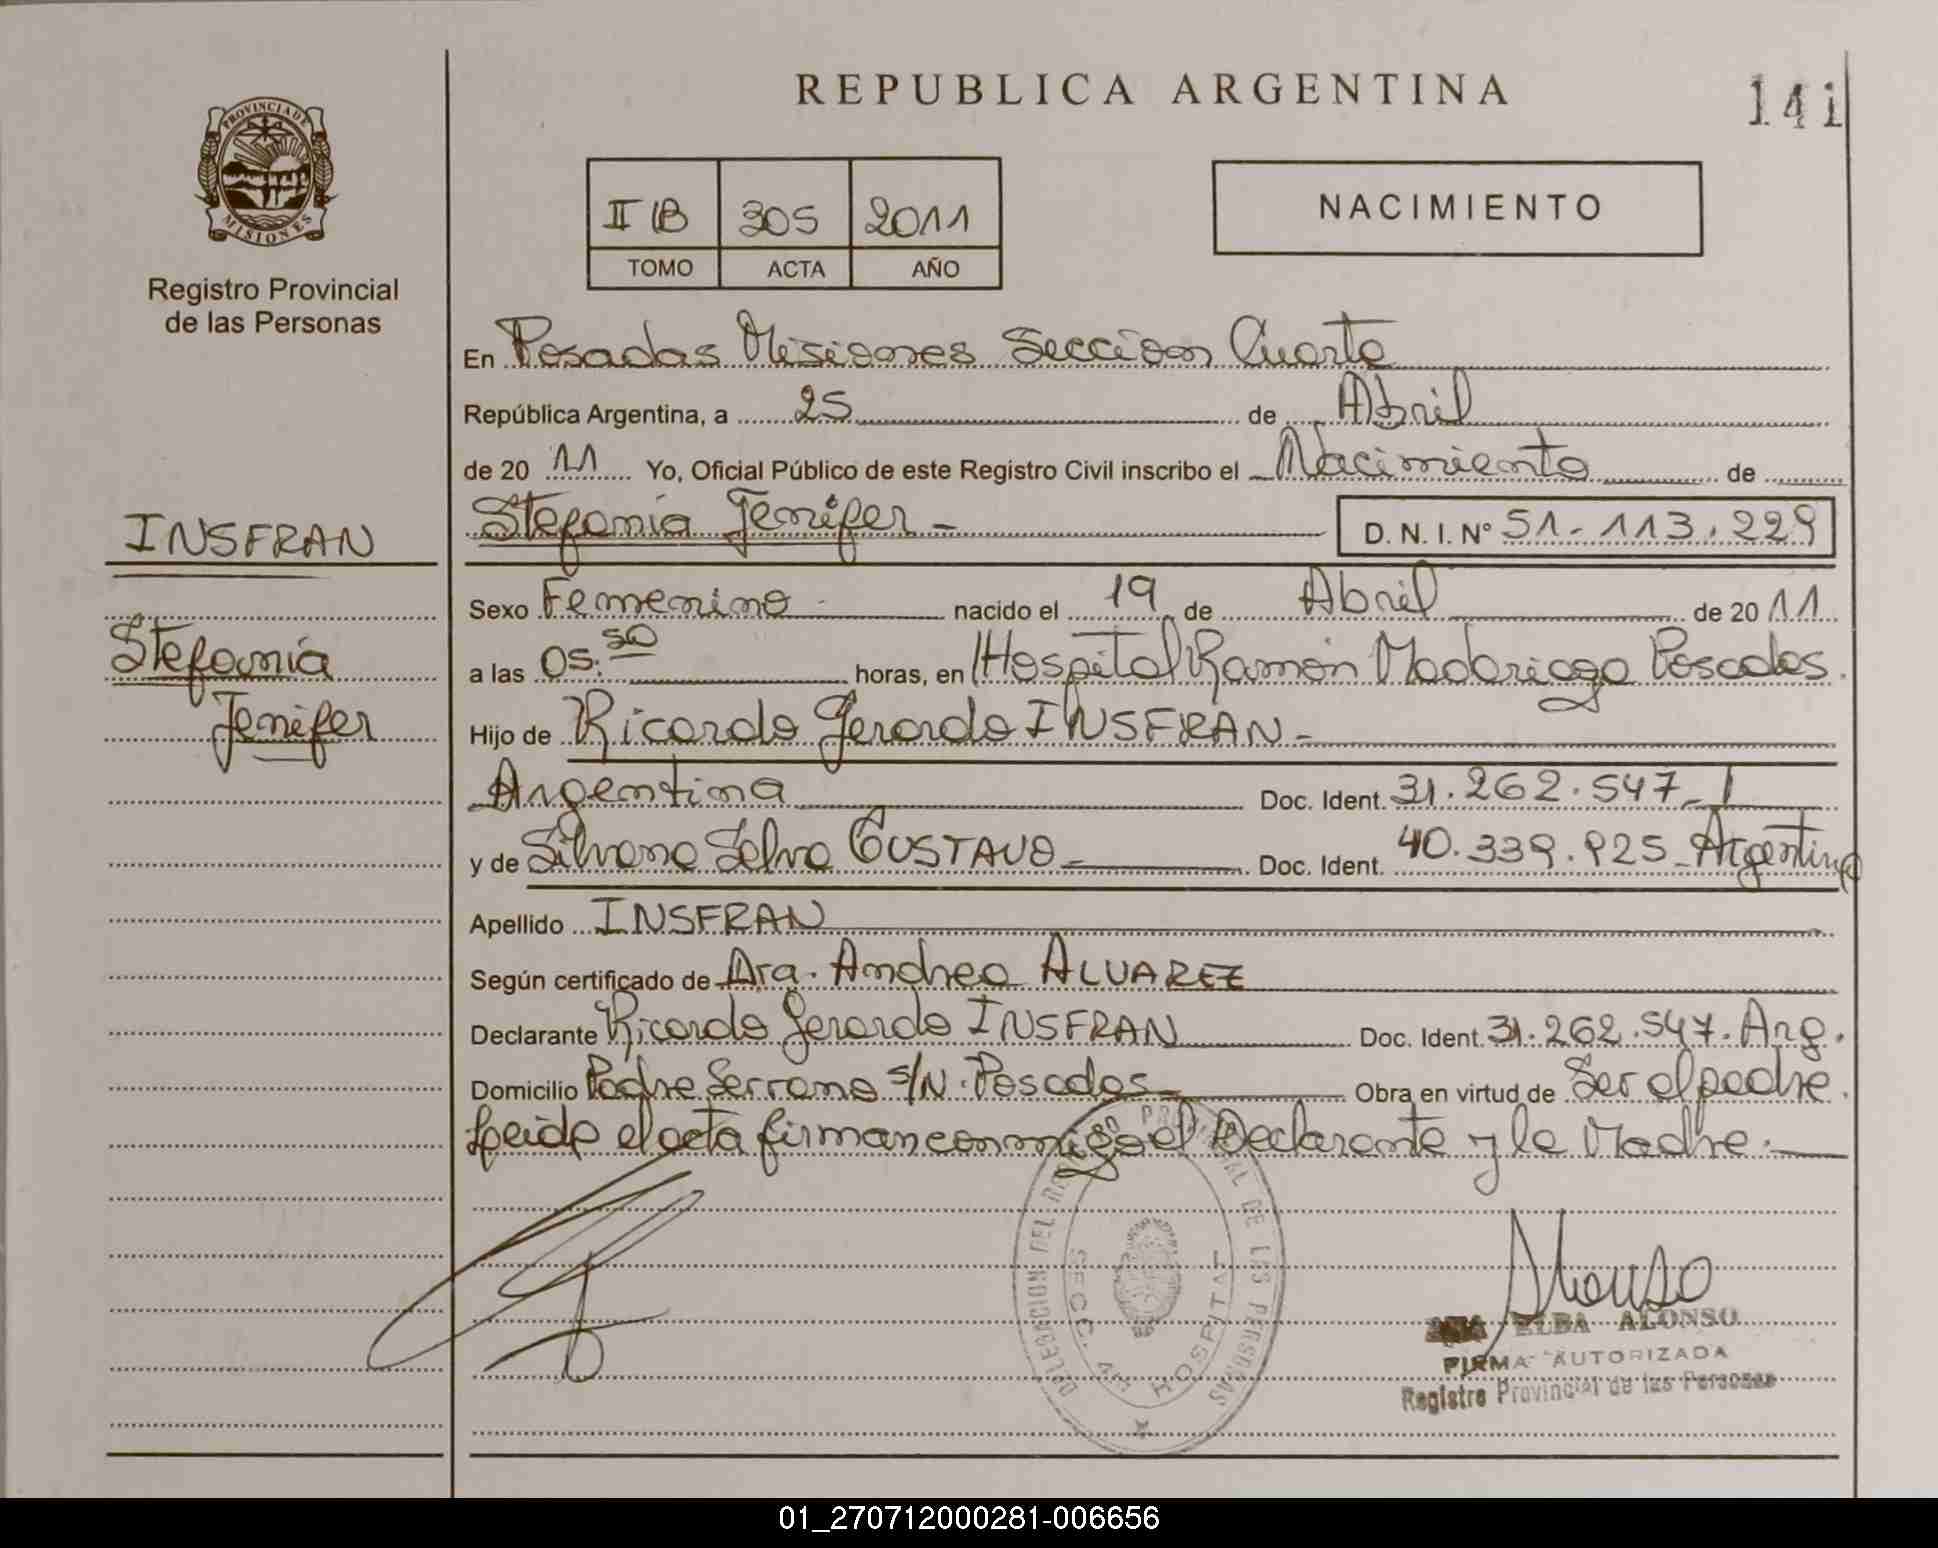 REPUBLICA ARGENTINA
141
PROVINCIA DE
MISIONES
Registro Provincial
de las Personas
II B 305 2011
TOMO ACTA AÑO
NACIMIENTO
En Posadas Misiones Seccion Cuarta
República Argentina, a 25 de Abril
de 20 11 Yo, Oficial Público de este Registro Civil inscribo el Nacimiento de
INSFRAN
Stefania Jenifer - D. N. I. N° 51.113.229
Sexo Femenino nacido el 19 de Abril de 20 11
Stefania
a las 05:50 horas, en Hospital Ramón Madariaga Posadas.
Jenifer
Hijo de Ricardo Gerardo INSFRAN -
Argentina Doc. Ident. 31.262.547
y de Silvana Selva GUSTAVO - Doc. Ident. 40.339.925 - Argentina
Apellido INSFRAN
Según certificado de Dra. Andrea ALVAREZ
Declarante Ricardo Gerardo INSFRAN Doc. Ident 31.262.547. Arg.
Domicilio Padre Serrano s/N. Posadas - Obra en virtud de Ser el padre.
Leida el acta firman conmigo el Declarante y la Madre. -
DELEGACION DEL REGISTRO PROVINCIAL DE LAS PERSONAS
SECC. 4ta HOSPITAL
Alonso
ELBA ALONSO
FIRMA AUTORIZADA
Registro Provincial de las Personas
01_270712000281-006656